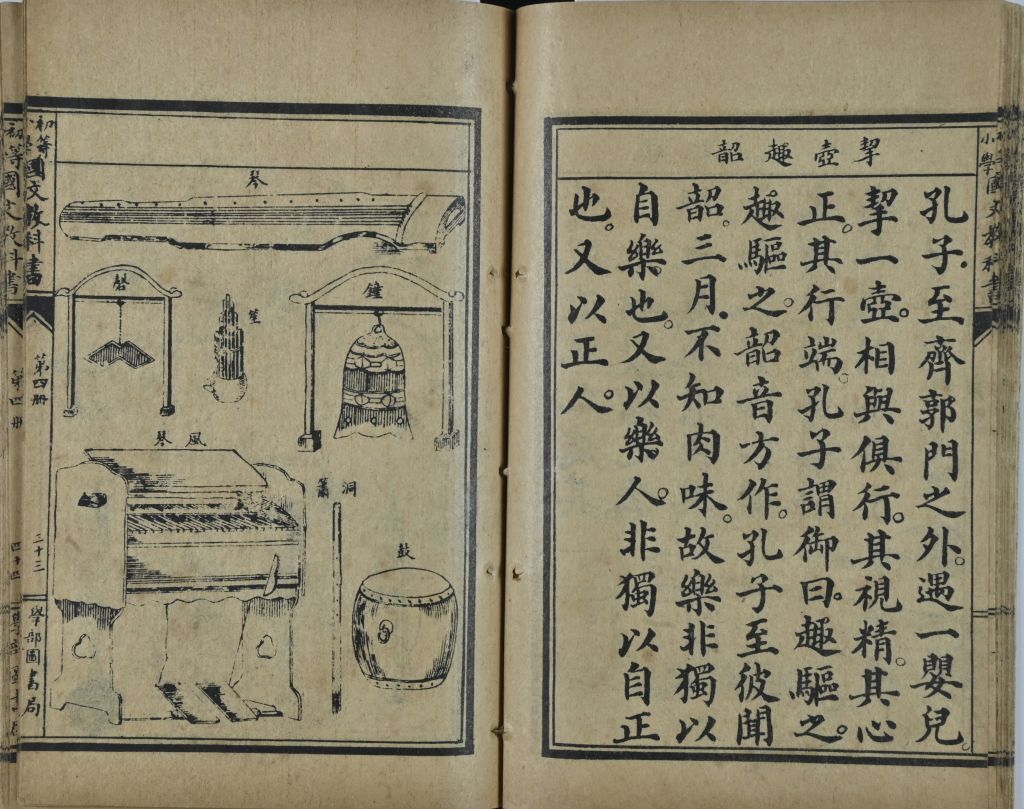 小學國文教科書
挈壺趣韶
孔子至齊郭門之外。遇一嬰兒。
挈一壺。相與俱行。其視精。其心
正。其行端。孔子謂御曰。趣驅之。
趣驅之。韶音方作。孔子至彼聞
韶。三月、不知肉味。故樂非獨以
自樂也。又以樂人。非獨以自正
也。又以正人。
琴
鐘
笙
磬
風琴
洞簫
鼓
初等小學國文教科書
第四册
三十三
學部圖書局
初等國文教科書
第四册
四十四